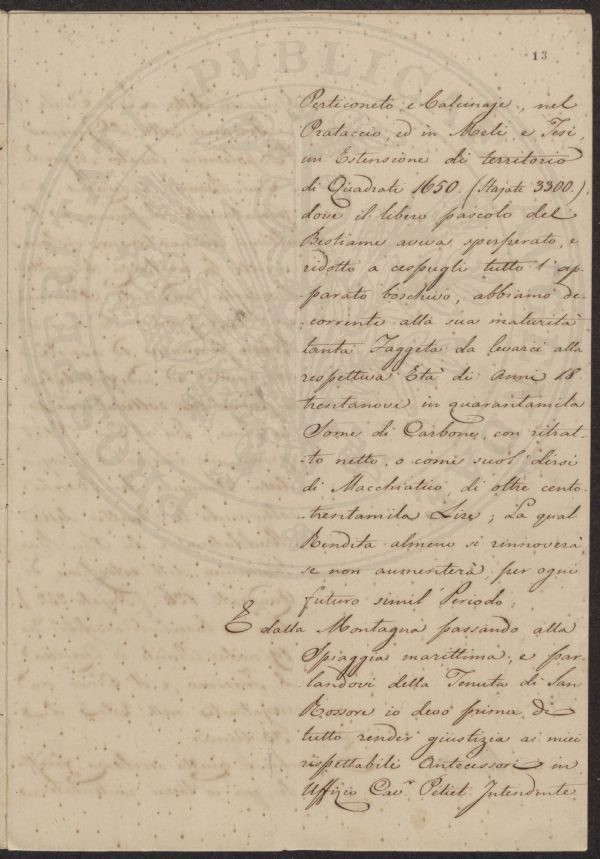 13
Perticoneto, e Calcinaje, nel
Prataccio, ed in Meli, e Tesi,
un Estensione di territorio
di Quadrati 1650. (Stajate 3300.)
dove il libero pascolo del
Bestiame aveva sperperato, e
ridotto a cespugli tutto l'ap-
-parato boschivo, abbiamo de-
-corrente alla sua maturità
tanta Faggeta da levarci alla
respettiva Età di Anni 18.
trentanove in quarantamila
Some di Carbone, con ritrat-
-to netto, o come suol dirsi
di Macchiatico, di oltre cento-
-trentamila Lire; La qual
Rendita almeno si rinnoverà,
se non aumenterà, per ogni
futuro simil Periodo;
E dalla Montagna passando alla
Spiaggia marittima, e par-
landovi della Tenuta di San
Rossore io devo prima di
tutto render giustizia ai miei
rispettabili Antecessori in
Uffizio Cavr. Petiet Intendente
PROSPERITATI PVBLICAE